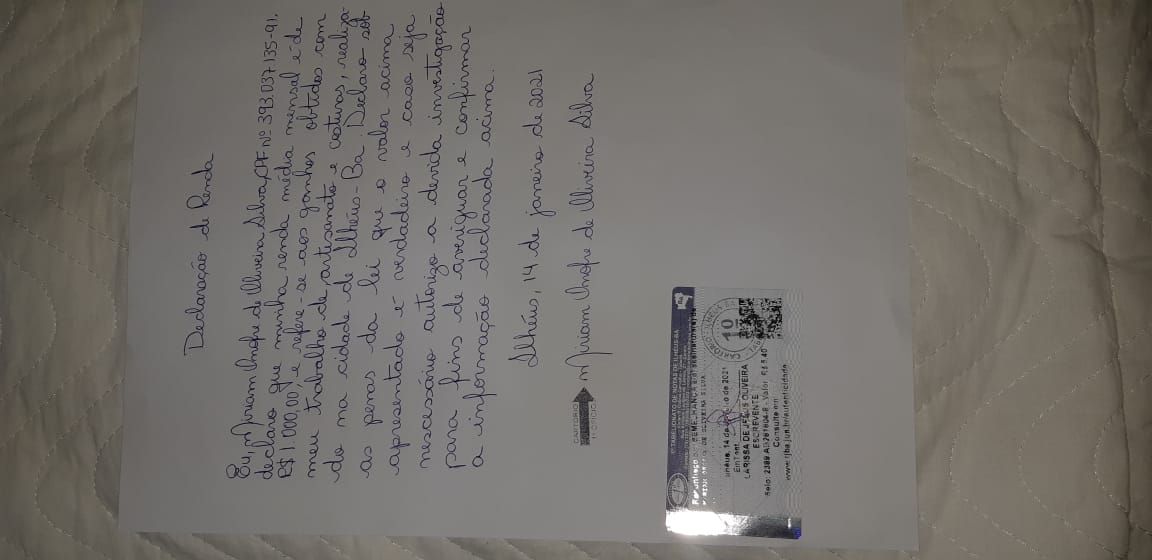 Declaração de Renda
Eu, Miriam Onofre de Oliveira Silva, CPF Nº 393.037.135-91.
declaro que minha renda média mensal é de
R$ 1.000,00, e refere-se aos ganhos obtidos com
meu trabalho de artesanato e costuras, realiza-
do na cidade de Ilhéus-Ba. Declaro sob
as penas da lei que o valor acima
apresentado é verdadeiro e caso seja
nescessário autorizo a devida investigação
para fins de averiguar e confirmar
a informação declarada acima.
Ilhéus, 14 de janeiro de 2021
Miriam Onofre de Oliveira Silva
CARTÓRIO
1º OFÍCIO
TABELIONATO DE NOTAS DE ILHÉUS-BA
Reconheço SEMELHANÇA
DE OLIVEIRA SILVA
Ilhéus, 14 de janeiro de 2021
Em Test.
LARISSA DE JESUS OLIVEIRA
ESCREVENTE
Selo: Valor R$ 5,40
Consulte em:
www.tjba.jus.br/autenticidade